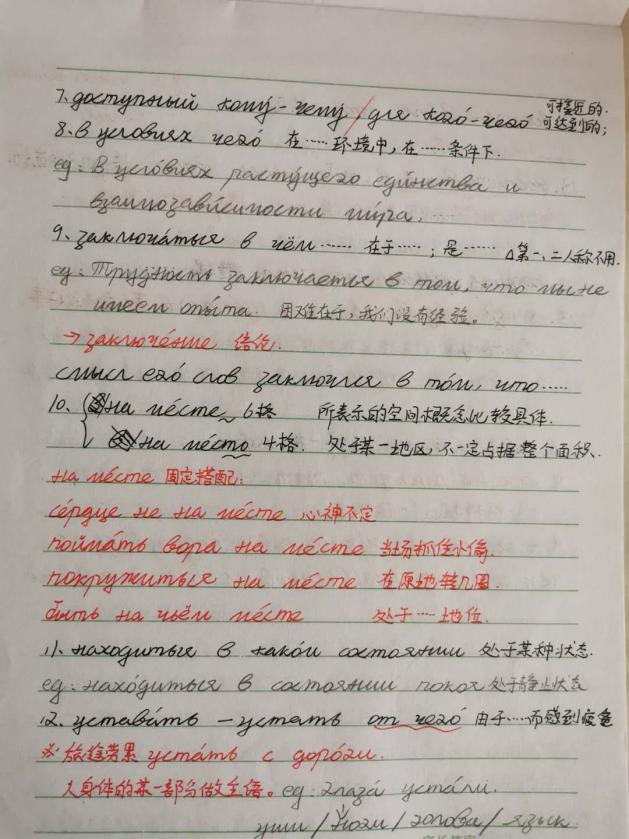 7. доступный кому́-чему́, для кого́-чего́ 可接近的.
可达到的;
8. в условиях чего́ 在……环境中, 在……条件下.
eg: В усло́виях расту́щего еди́нства и
взаимозави́симости ми́ра.
9. заключа́ться в чём …… 在于……; 是…… △第一、二人称不用.
eg: Тру́дность заключается в том, что мы не
имеем о́пыта. 困难在于, 我们没有经验。
→ заключе́ние 结论.
смысл его́ слов заключился в то́м, что……
10. { на ме́сте 6格 所表示的空间概念比较具体.
на ме́сто 4格. 处于某一地区, 不一定占据整个面积.
на ме́сте 固定搭配:
се́рдце не на ме́сте 心神不定
пойма́ть вора на ме́сте 当场抓住小偷.
покружиться на ме́сте 在原地转几圈.
быть на чьём ме́сте 处于……地位.
11. находиться в како́м состоянии 处于某种状态.
eg: нахо́диться в состоянии покоя 处于静止状态
12. устава́ть – устать от чего́ 由于……而感到疲惫
※ 旅途劳累 уста́ть с доро́ги.
人身体的某一部分做主语。 eg: глаза́ устали.
уши / но́ги / голова / язык